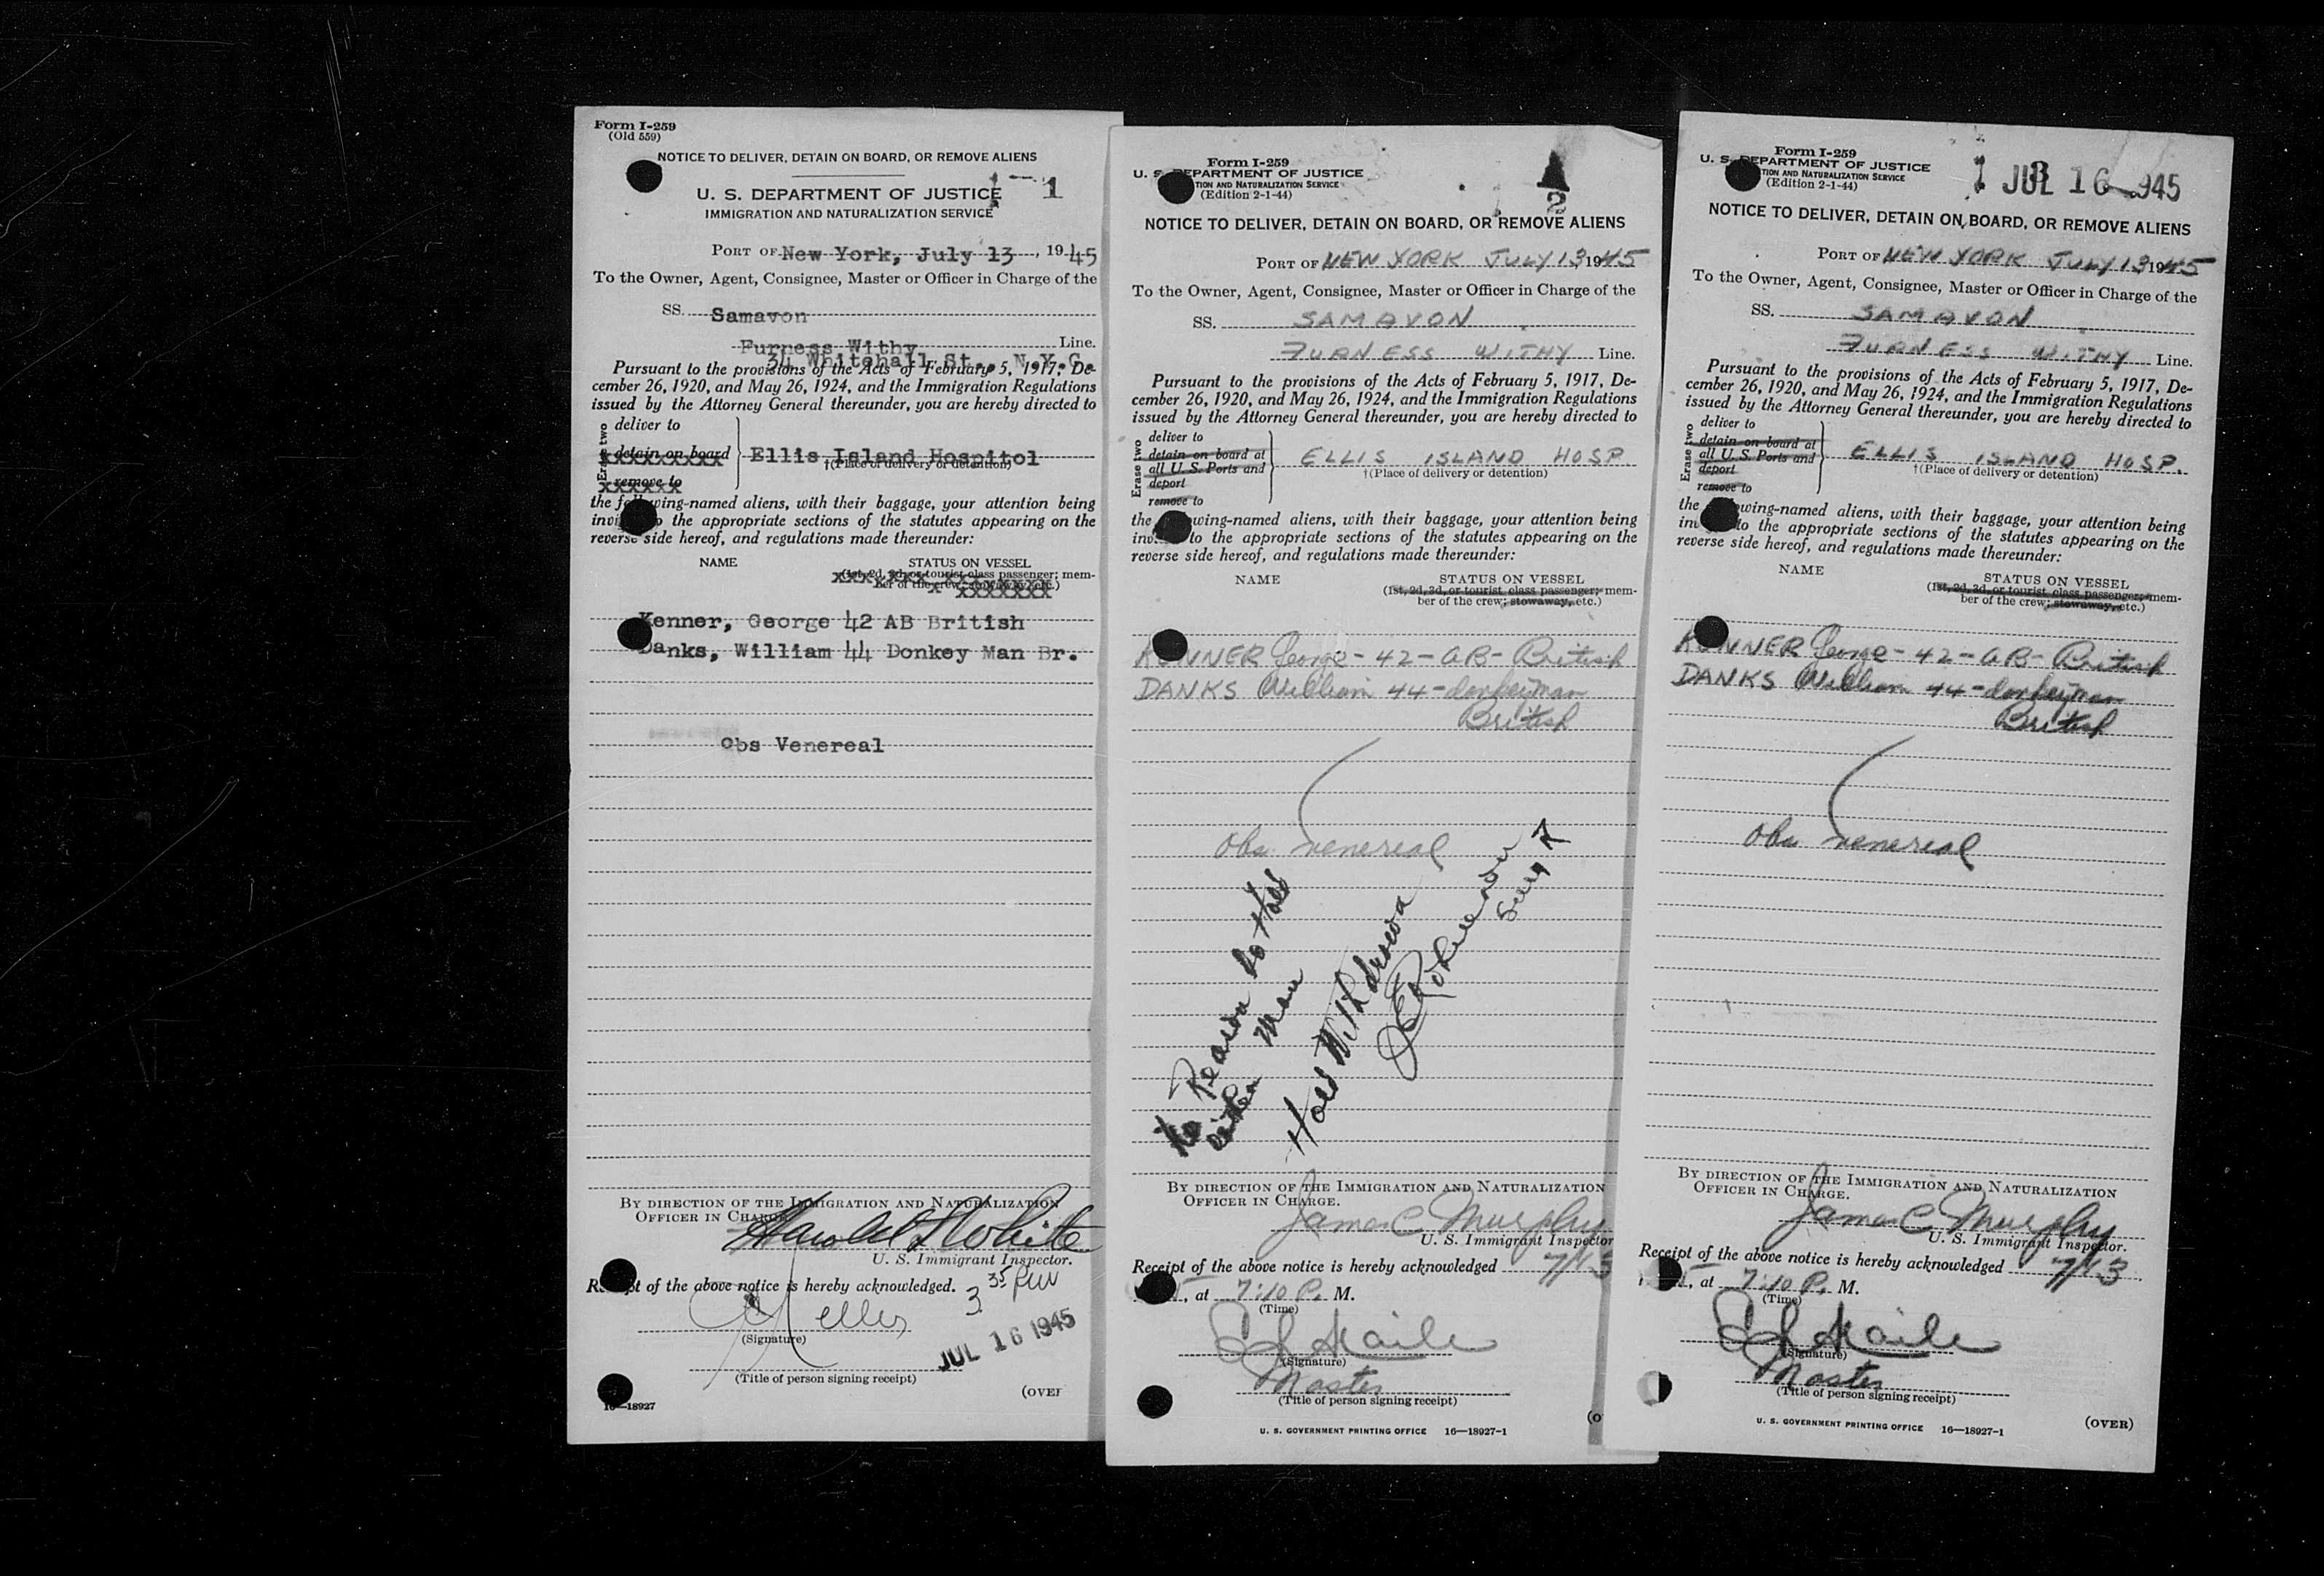 Form I-259
(Old 559)
NOTICE TO DELIVER, DETAIN ON BOARD, OR REMOVE ALIENS
1 — 1
U. S. DEPARTMENT OF JUSTICE
IMMIGRATION AND NATURALIZATION SERVICE
PORT OF New York, July 13, 1945
To the Owner, Agent, Consignee, Master or Officer in Charge of the
SS. Samavon
Furness Withy Line.
34 Whitehall St., N.Y.C.
Pursuant to the provisions of the Acts of February 5, 1917, De-
cember 26, 1920, and May 26, 1924, and the Immigration Regulations
issued by the Attorney General thereunder, you are hereby directed to
Erase two
deliver to
detain on board
remove to
Ellis Island Hospitol
†(Place of delivery or detention)
the following-named aliens, with their baggage, your attention being
invi to the appropriate sections of the statutes appearing on the
reverse side hereof, and regulations made thereunder:
NAME STATUS ON VESSEL
(1st, 2d, 3d, or tourist class passenger; mem-
ber of the crew; stowaway, etc.)
Kenner, George 42 AB British
Danks, William 44 Donkey Man Br.
Obs Venereal
BY DIRECTION OF THE IMMIGRATION AND NATURALIZATION
OFFICER IN CHARGE.
Harold L White
U. S. Immigrant Inspector.
Receipt of the above notice is hereby acknowledged. 3 35 PM
(Signature)
JUL 16 1945
(Title of person signing receipt)
(OVER
16—18927
Form I-259
U. S. DEPARTMENT OF JUSTICE
TION AND NATURALIZATION SERVICE
(Edition 2-1-44)
2
NOTICE TO DELIVER, DETAIN ON BOARD, OR REMOVE ALIENS
PORT OF NEW YORK JULY 13 1945
To the Owner, Agent, Consignee, Master or Officer in Charge of the
SS. SAMAVON
FURNESS WITHY Line.
Pursuant to the provisions of the Acts of February 5, 1917, De-
cember 26, 1920, and May 26, 1924, and the Immigration Regulations
issued by the Attorney General thereunder, you are hereby directed to
Erase two
deliver to
detain on board at
all U. S. Ports and
deport
remove to
ELLIS ISLAND HOSP
†(Place of delivery or detention)
the following-named aliens, with their baggage, your attention being
inv to the appropriate sections of the statutes appearing on the
reverse side hereof, and regulations made thereunder:
NAME STATUS ON VESSEL
(1st, 2d, 3d, or tourist class passenger; mem-
ber of the crew; stowaway, etc.)
KENNER George - 42 - AB - British
DANKS William 44 - donkeyman
British
Obs venereal
No Reason to Hold
either Man
Hold Withdrawn
Surg R
BY DIRECTION OF THE IMMIGRATION AND NATURALIZATION
OFFICER IN CHARGE.
James C Murphy
U. S. Immigrant Inspector
Receipt of the above notice is hereby acknowledged 7/13
, at 7:10 P. M.
(Time)
(Signature)
Master
(Title of person signing receipt)
(O
U. S. GOVERNMENT PRINTING OFFICE 16—18927-1
Form I-259
U. S. DEPARTMENT OF JUSTICE
TION AND NATURALIZATION SERVICE
(Edition 2-1-44)
3
JUL 16 1945
NOTICE TO DELIVER, DETAIN ON BOARD, OR REMOVE ALIENS
PORT OF NEW YORK JULY 13 1945
To the Owner, Agent, Consignee, Master or Officer in Charge of the
SS. SAMAVON
FURNESS WITHY Line.
Pursuant to the provisions of the Acts of February 5, 1917, De-
cember 26, 1920, and May 26, 1924, and the Immigration Regulations
issued by the Attorney General thereunder, you are hereby directed to
Erase two
deliver to
detain on board at
all U. S. Ports and
deport
remove to
ELLIS ISLAND HOSP.
†(Place of delivery or detention)
the following-named aliens, with their baggage, your attention being
inv to the appropriate sections of the statutes appearing on the
reverse side hereof, and regulations made thereunder:
NAME STATUS ON VESSEL
(1st, 2d, 3d, or tourist class passenger; mem-
ber of the crew; stowaway, etc.)
KENNER George - 42 - AB - British
DANKS William 44 - donkeyman
British
Obs venereal
BY DIRECTION OF THE IMMIGRATION AND NATURALIZATION
OFFICER IN CHARGE.
James C Murphy
U. S. Immigrant Inspector.
Receipt of the above notice is hereby acknowledged 7/13
, at 7:10 P. M.
(Time)
(Signature)
Master
(Title of person signing receipt)
U. S. GOVERNMENT PRINTING OFFICE 16—18927-1
(OVER)